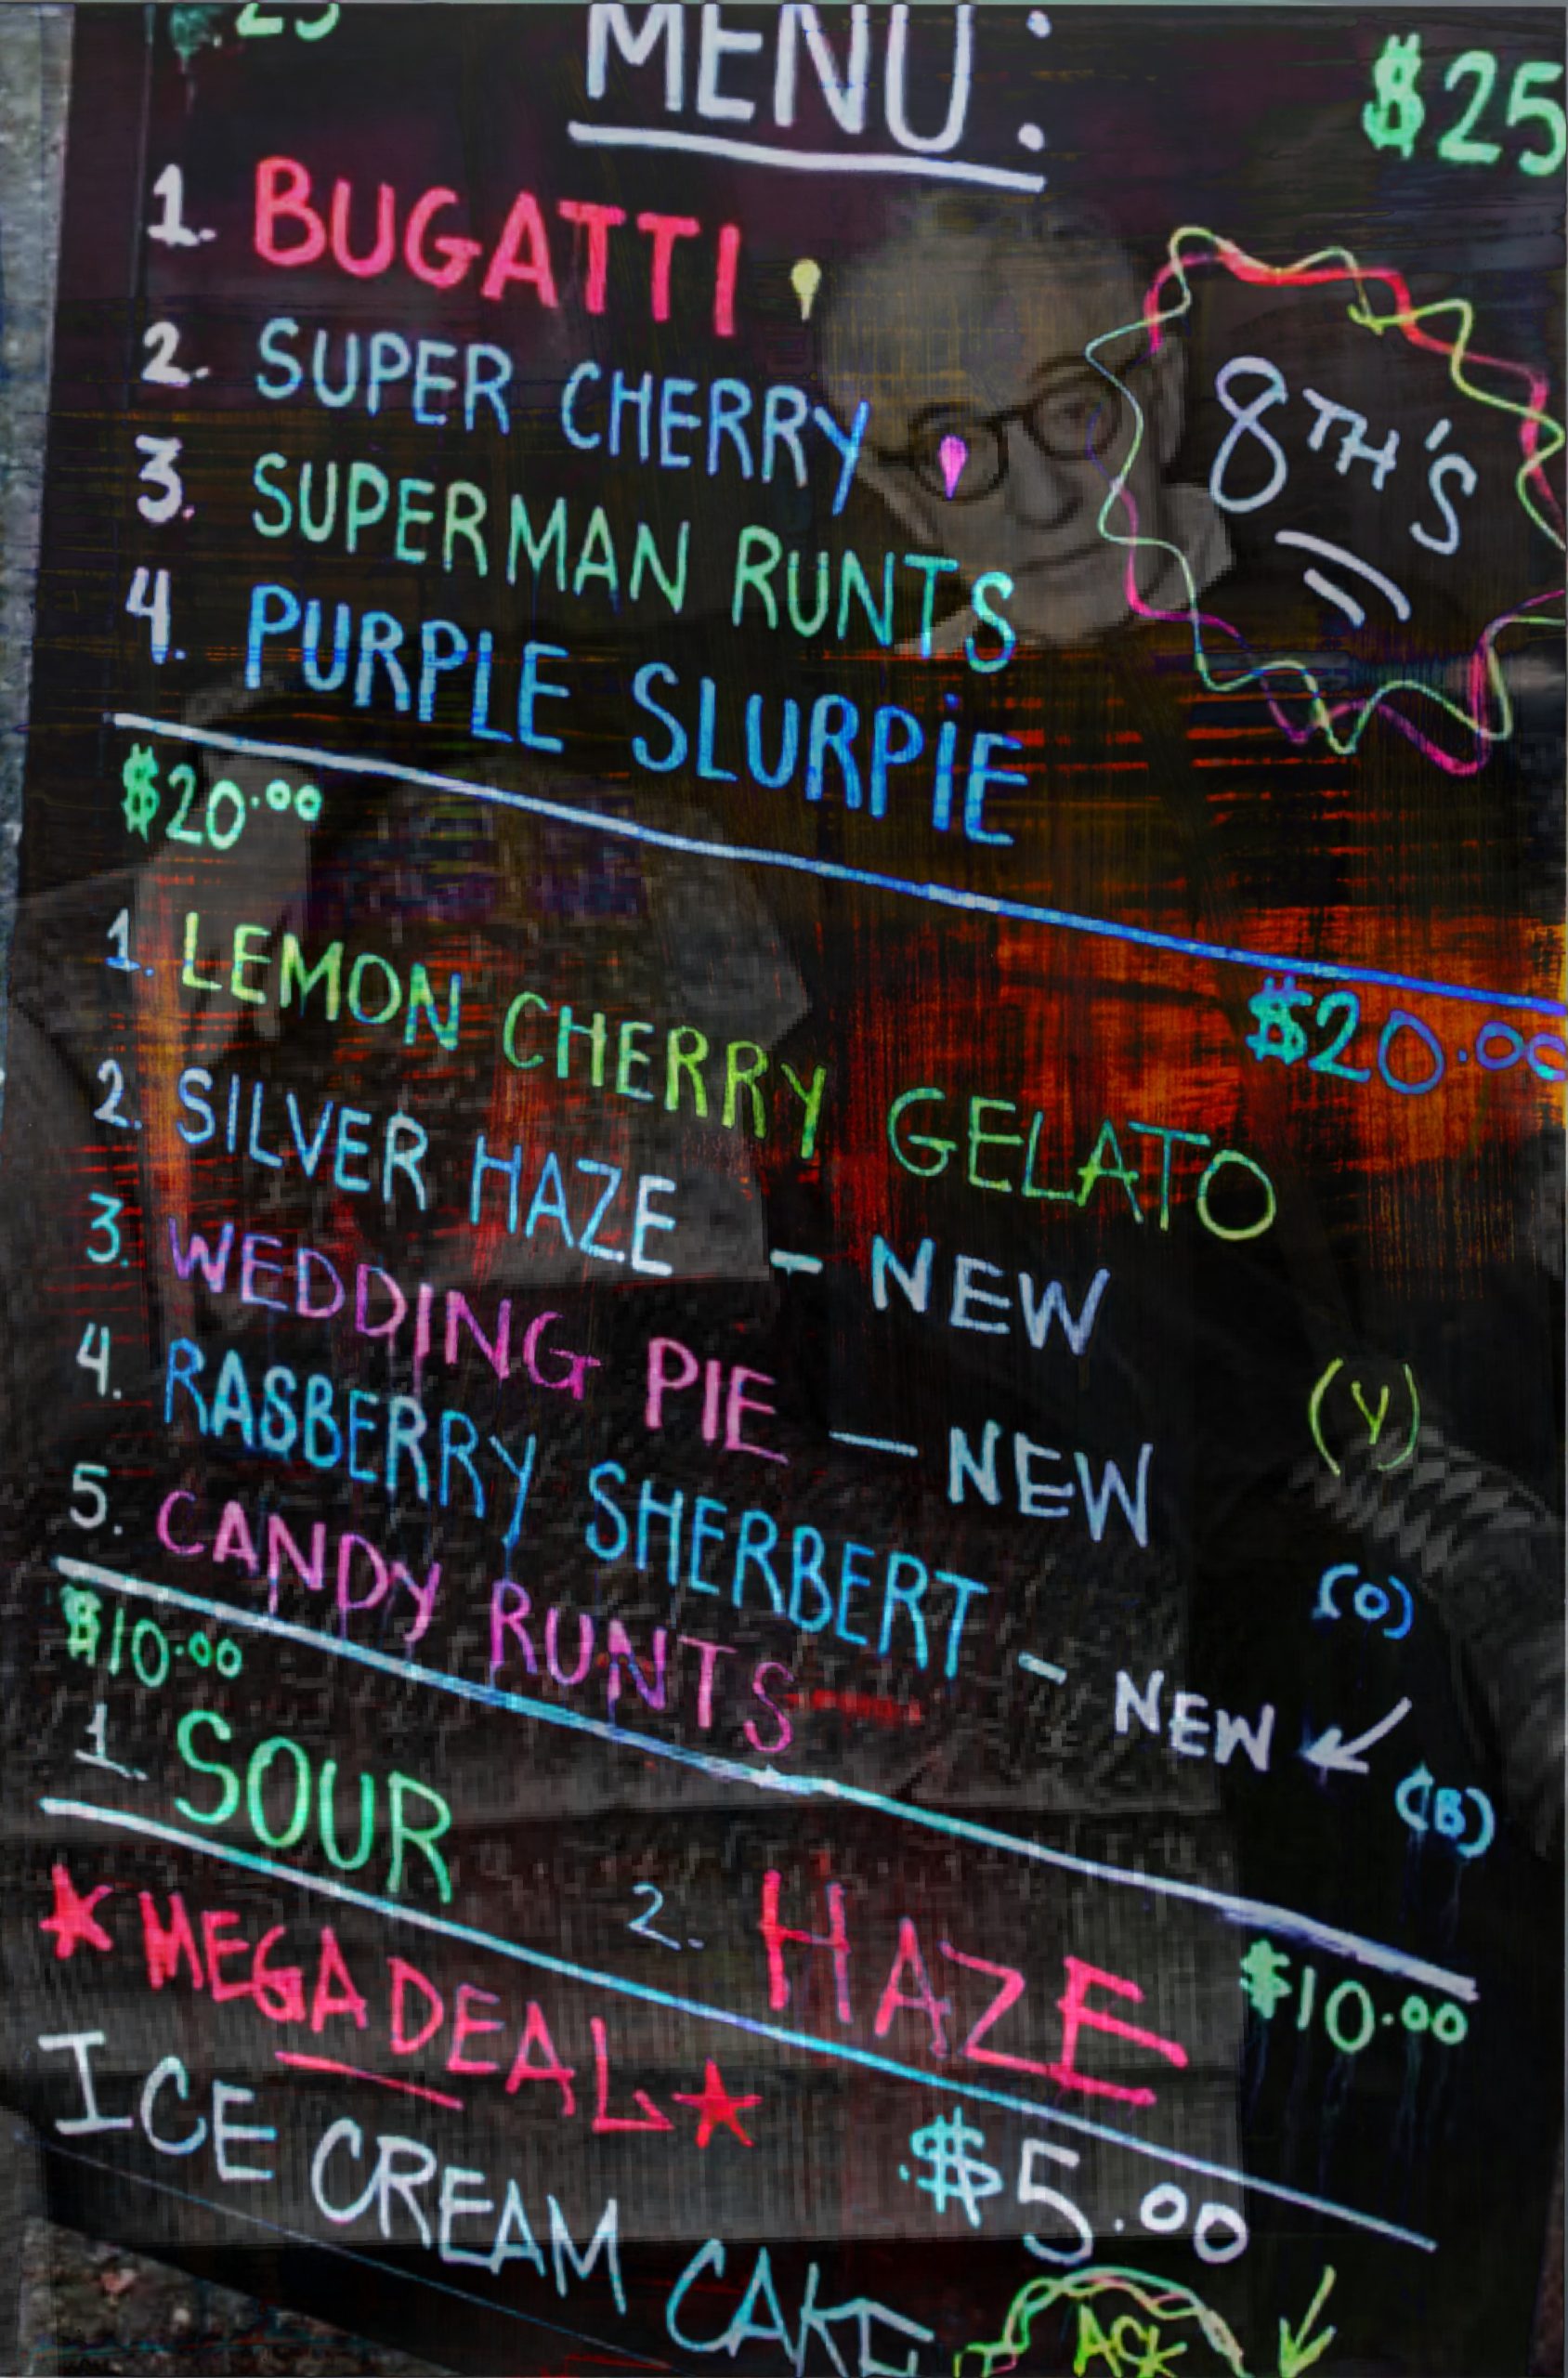 .25
MENU:
$25
1. BUGATTI
2. SUPER CHERRY
3. SUPERMAN RUNTS
4. PURPLE SLURPiE
8TH'S
$20.00
$20.00
1. LEMON CHERRY GELATO
2. SILVER HAZE - NEW
3. WEDDING PIE - NEW
(Y)
4. RASBERRY SHERBERT - NEW
(O)
5. CANDY RUNTS
(B)
$10.00
$10.00
1. SOUR
2. HAZE
MEGA DEAL
$5.00
ICE CREAM CAKE
ASK